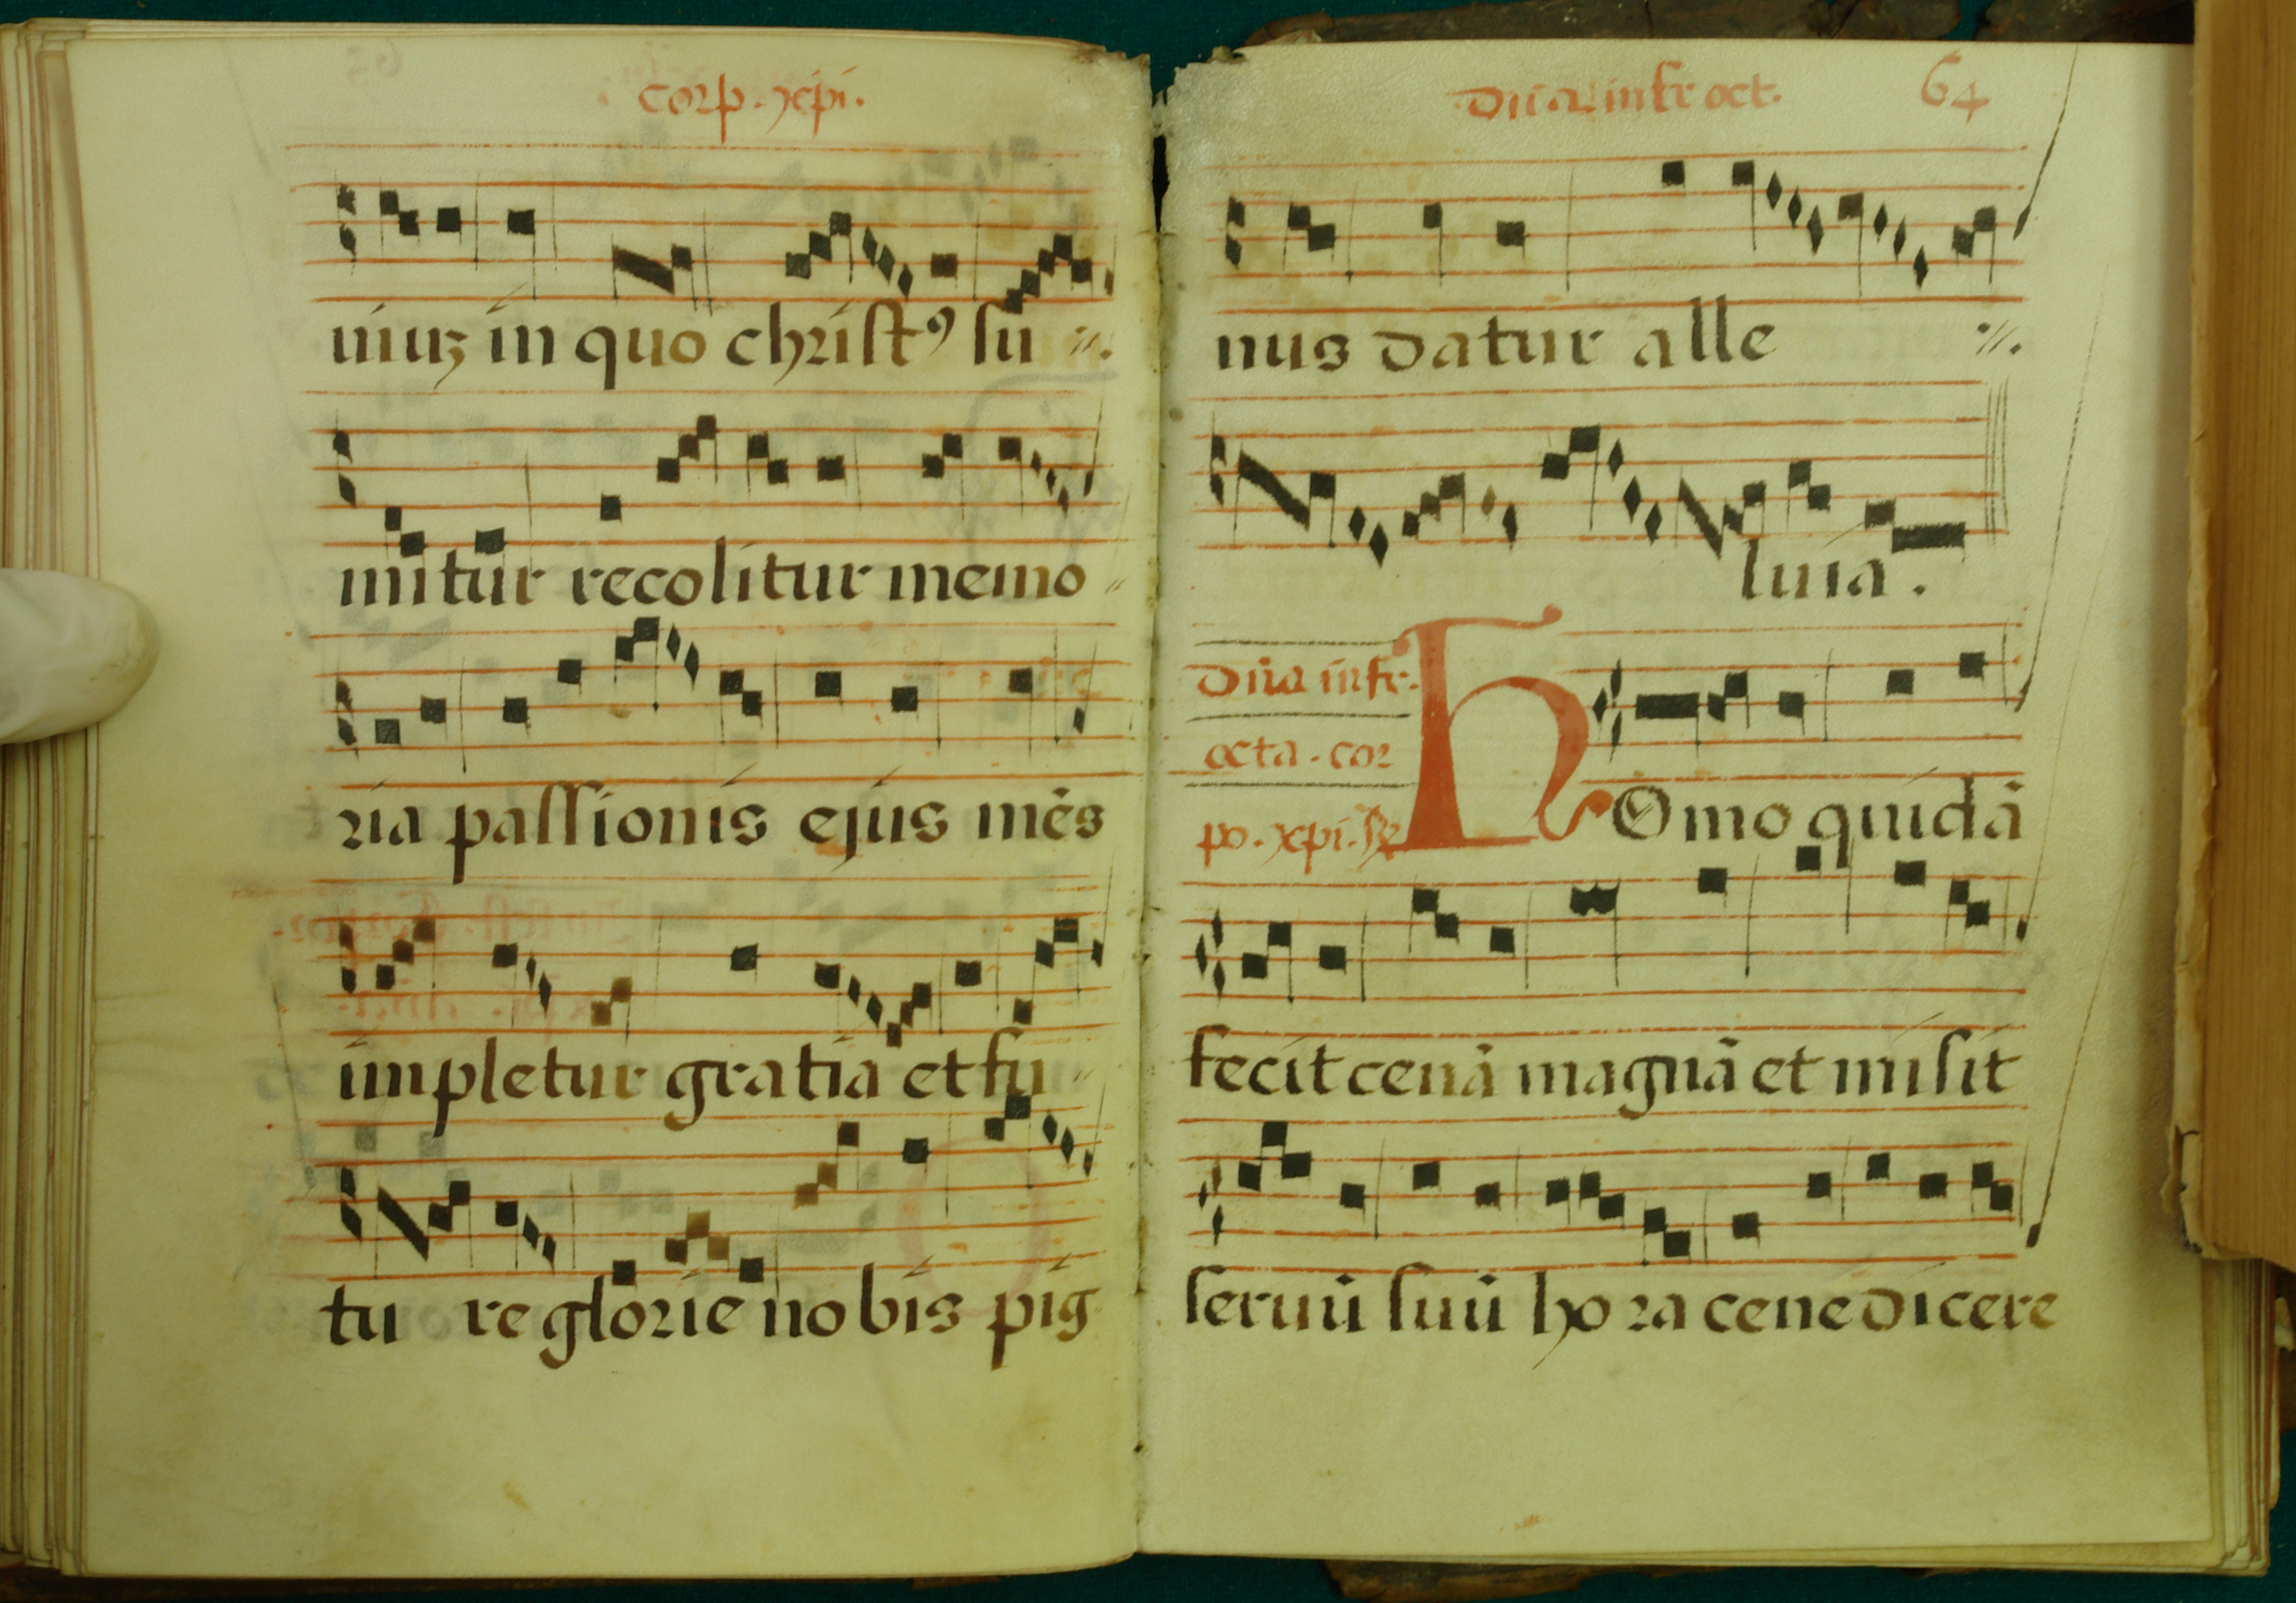 corp. xpi.
uiuʒ in quo christꝰ su
mitur recolitur memo
ria passionis ejus mẽs
impletur gratia et fu
tu re glorie nobis pig
64
nus datur alle
luia.
dña infr.
octa. cor
po. xpi. ℟
HOmo quidã
fecit cenã magnã et misit
seruũ suũ hora cene dicere